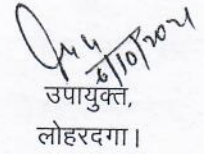 6/10/2021
उपायुक्त,
लोहरदगा।